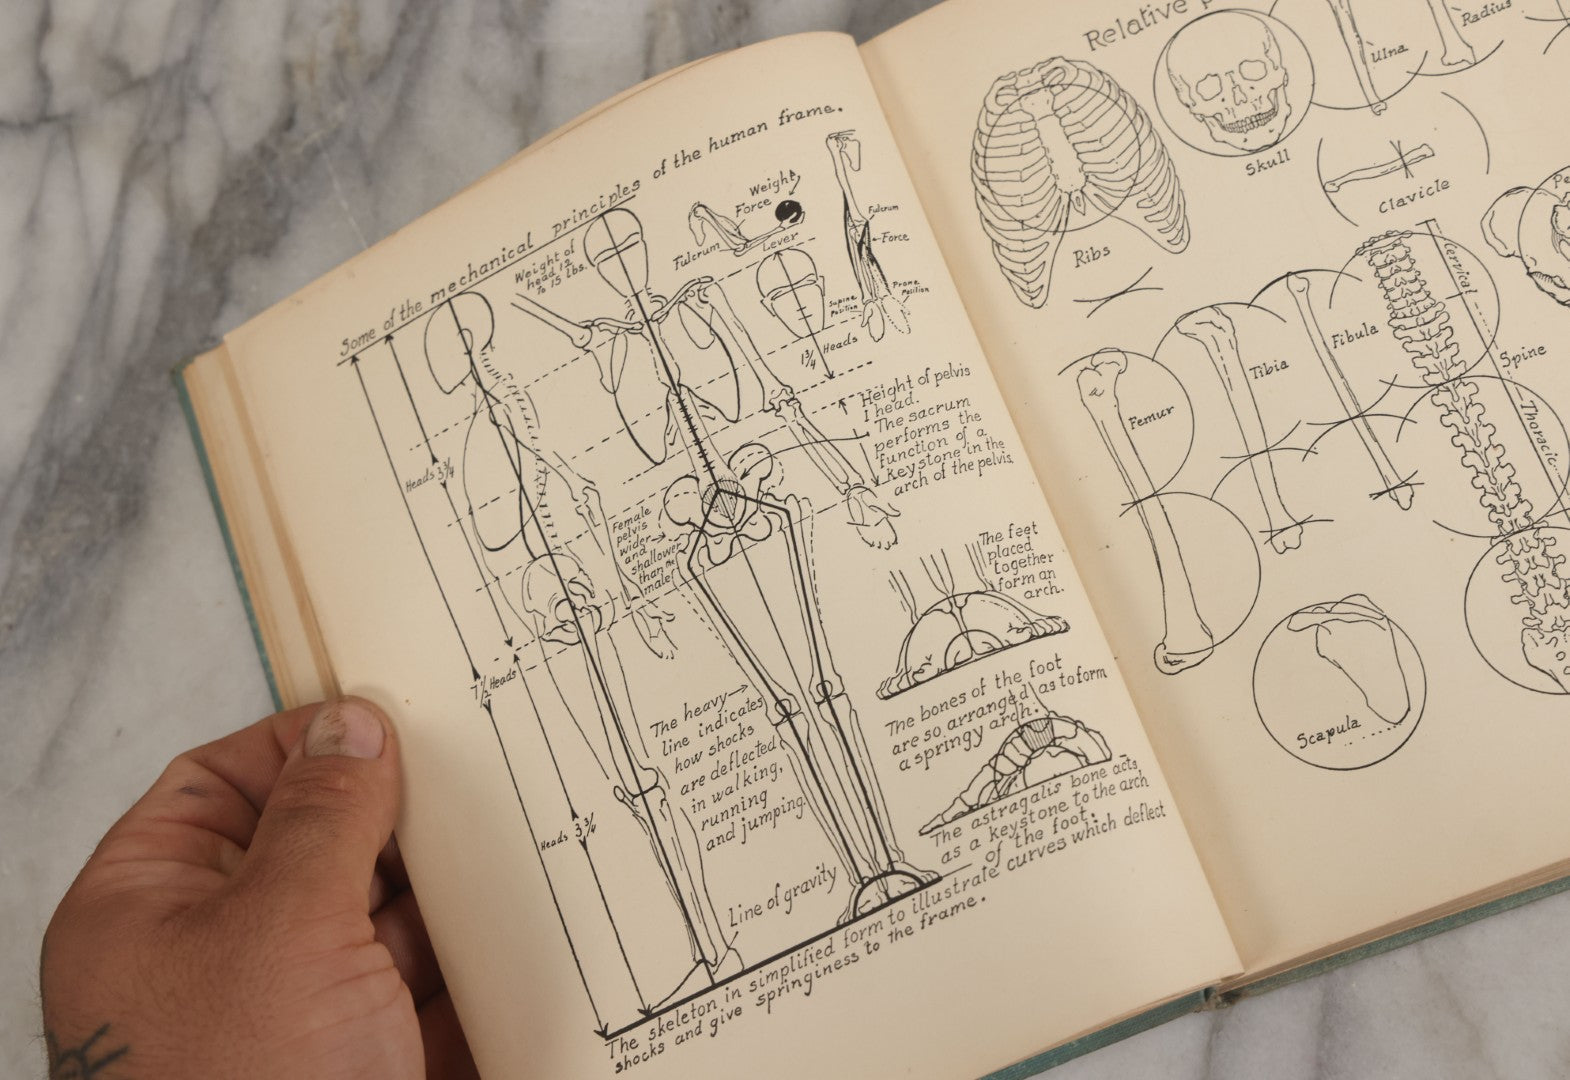 Some of the mechanical principles of the human frame.
Weight of
head 12
to 15 lbs.
Weight
Force
Fulcrum
Lever
Fulcrum
Force
Supine
Position
Prone
Position
1 3/4 Heads
Heads 3 3/4
7 1/2 Heads
Heads 3 3/4
Height of pelvis
1 head.
The sacrum
performs the
function of a
keystone in the
arch of the pelvis.
Female
pelvis
wider
and
shallower
than the
male.
The feet
placed
together
form an
arch.
The heavy
line indicates
how shocks
are deflected
in walking,
running
and jumping.
The bones of the foot
are so arranged as to form
a springy arch.
The astragalis bone acts
as a keystone to the arch
of the foot.
Line of gravity
The skeleton in simplified form to illustrate curves which deflect
shocks and give springiness to the frame.
Relative
Ribs
Skull
Ulna
Radius
Clavicle
Femur
Tibia
Fibula
Cervical
Spine
Thoracic
Scapula